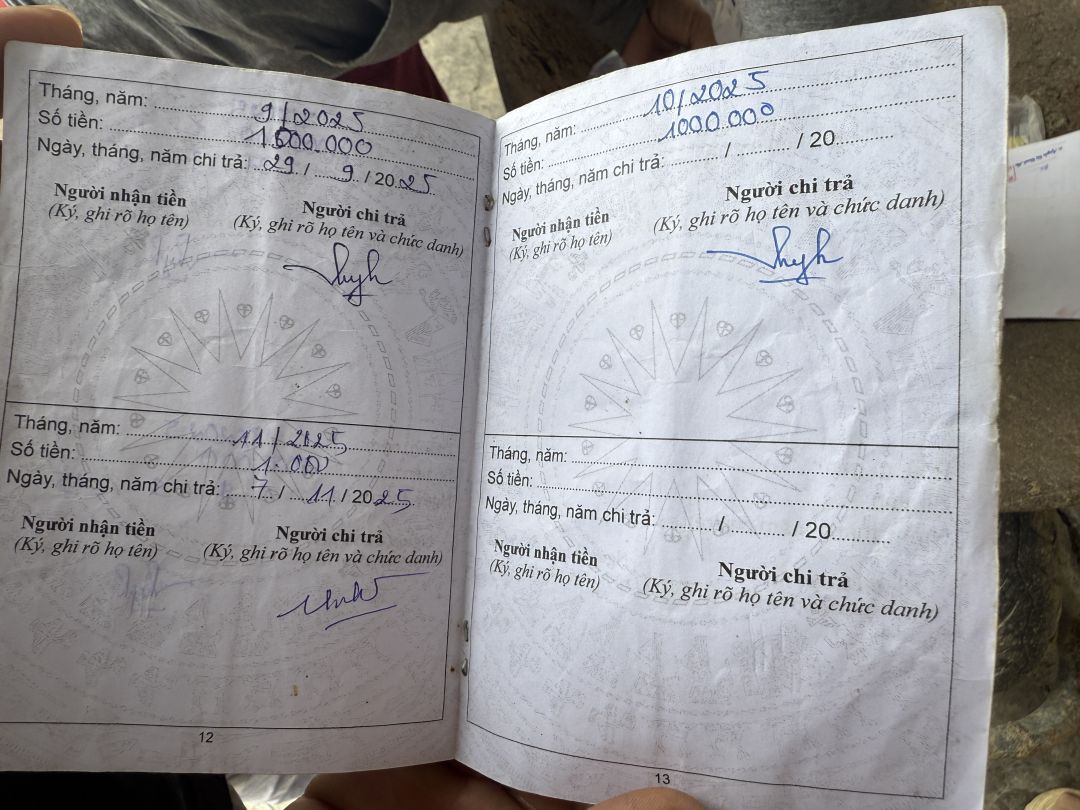 Tháng, năm: 9/2025
Số tiền: 1000.000
Ngày, tháng, năm chi trả: 29 / 9 / 2025
Người nhận tiền Người chi trả
(Ký, ghi rõ họ tên) (Ký, ghi rõ họ tên và chức danh)
Tháng, năm: 11/2025
Số tiền: 1.000
Ngày, tháng, năm chi trả: 7 / 11 / 2025
Người nhận tiền Người chi trả
(Ký, ghi rõ họ tên) (Ký, ghi rõ họ tên và chức danh)
12
Tháng, năm: 10/2025
Số tiền: 1000.000
Ngày, tháng, năm chi trả: / / 20
Người nhận tiền Người chi trả
(Ký, ghi rõ họ tên) (Ký, ghi rõ họ tên và chức danh)
Tháng, năm:
Số tiền:
Ngày, tháng, năm chi trả: / / 20
Người nhận tiền Người chi trả
(Ký, ghi rõ họ tên) (Ký, ghi rõ họ tên và chức danh)
13